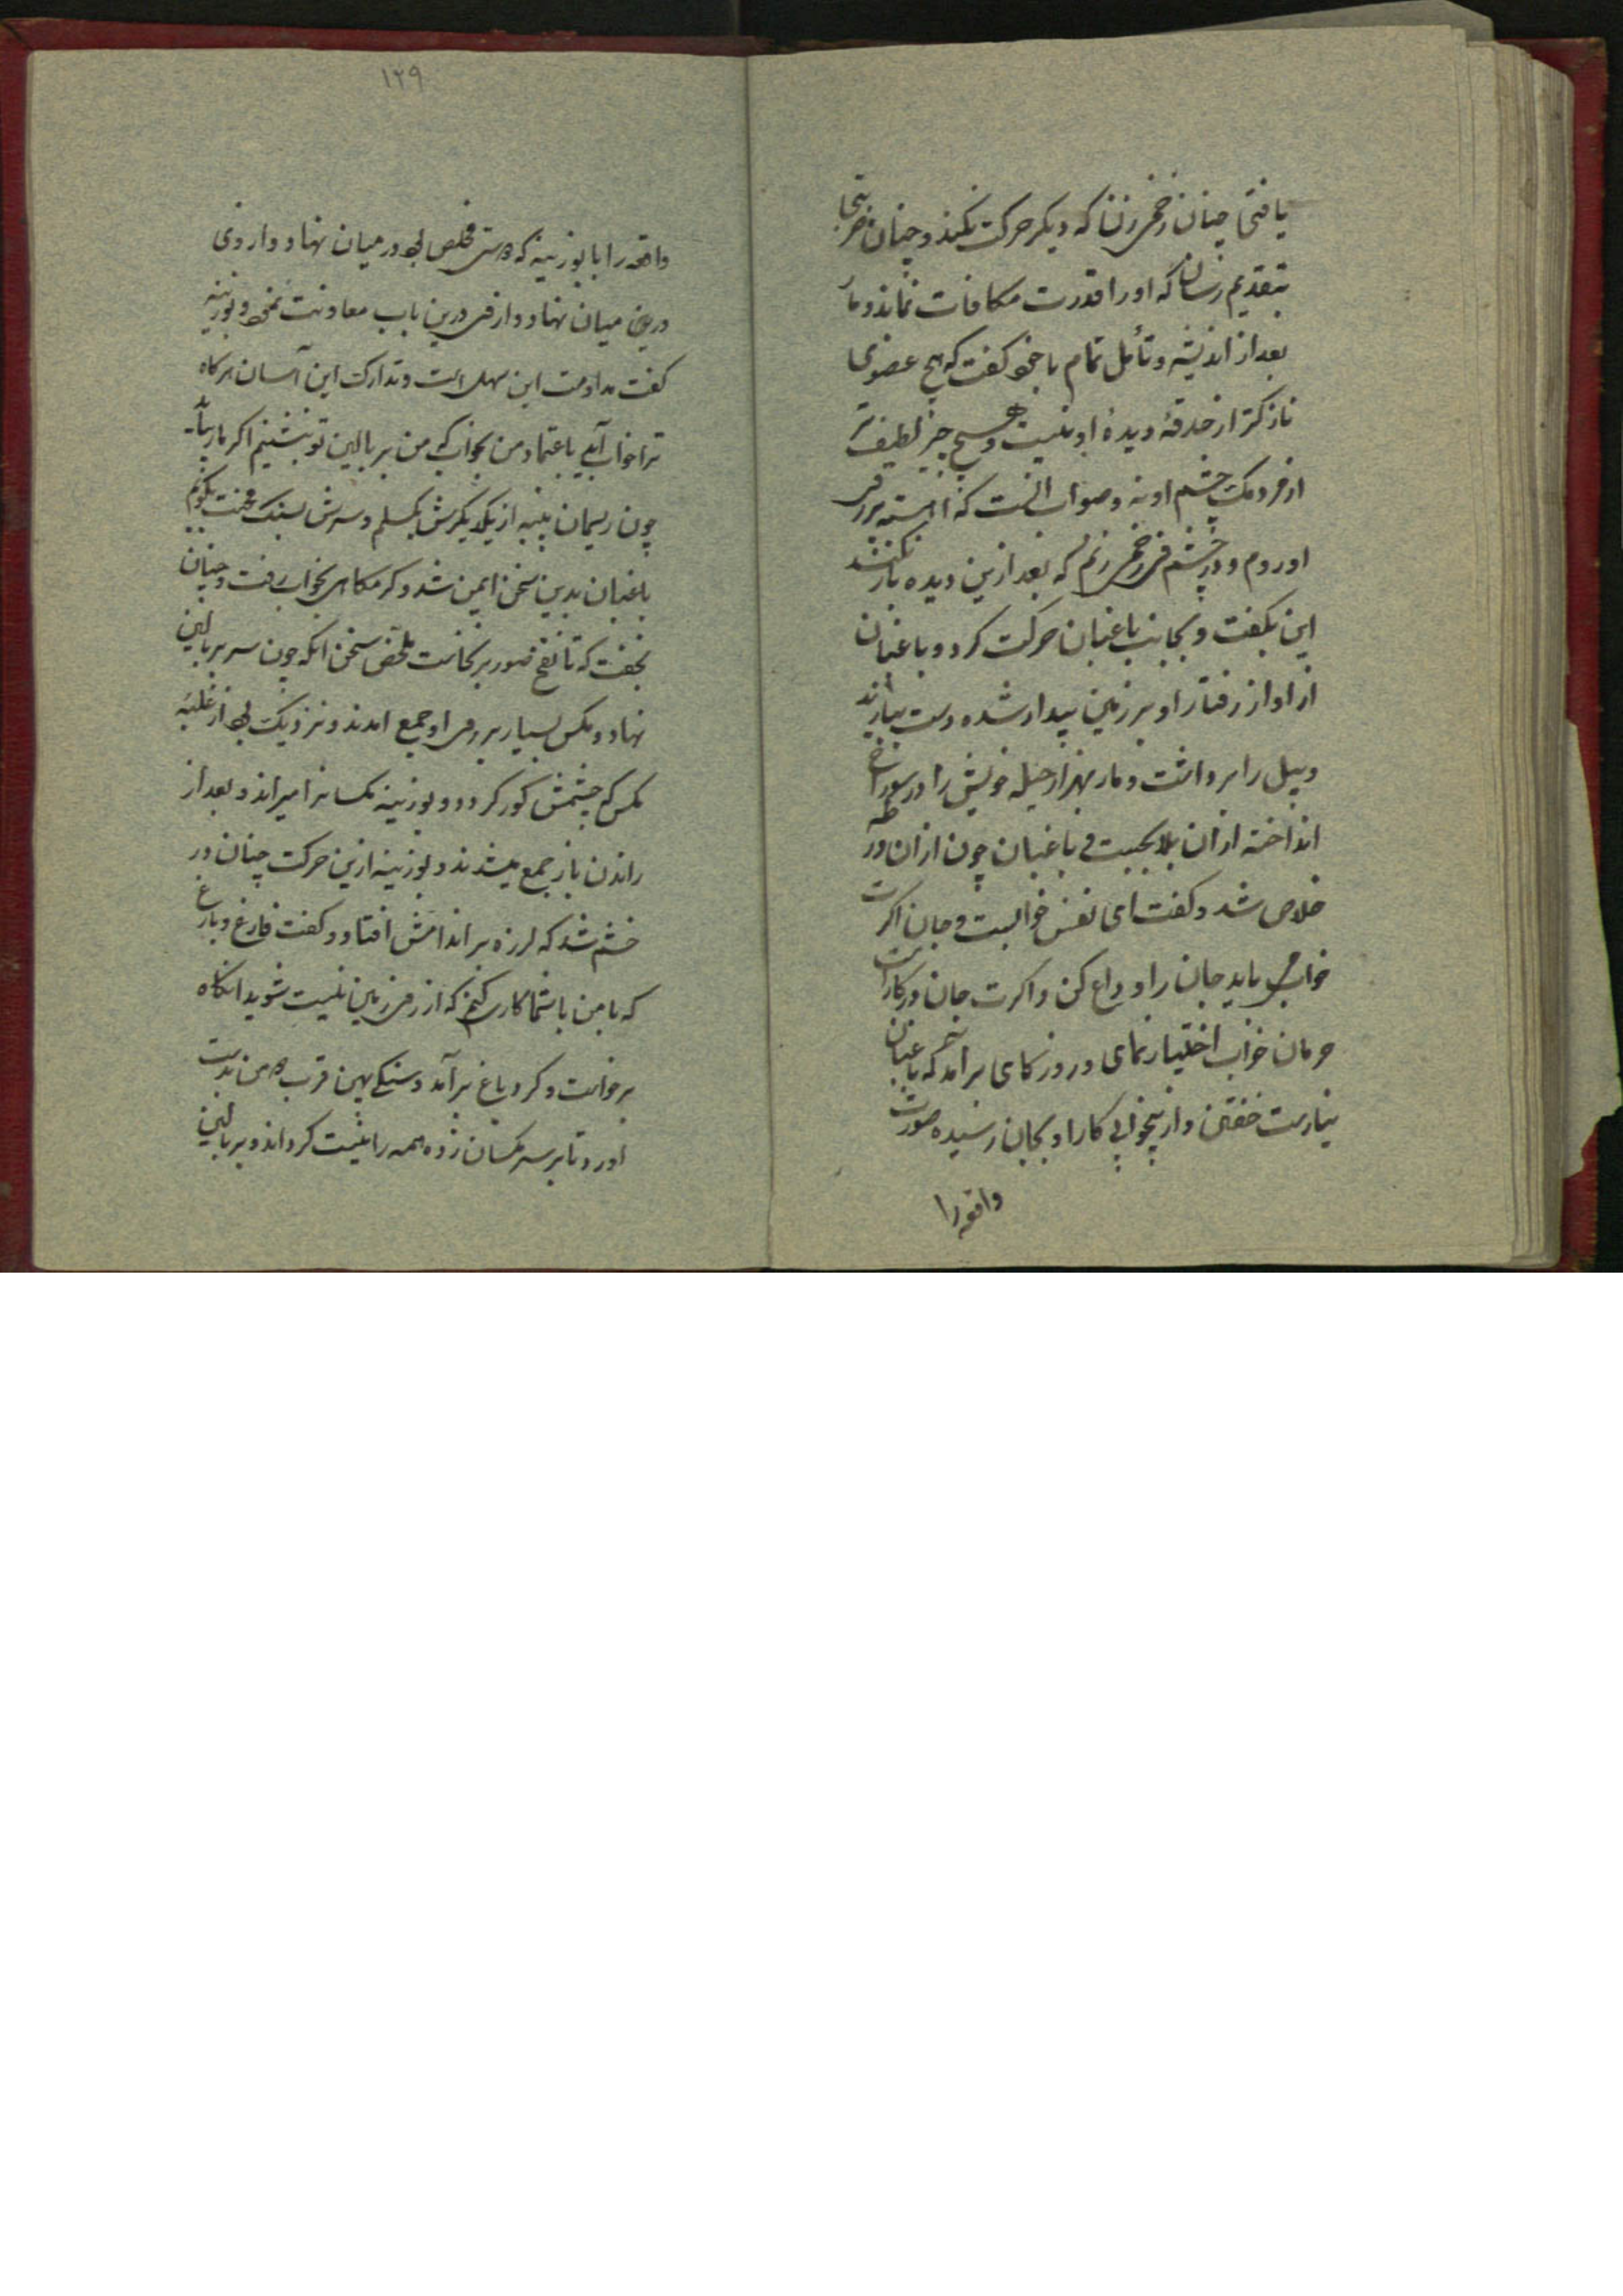 یافتی چنان زخمی زن که دیکر حرکت نکند و چنان ضربتی
بتقدیم رسان که او را قدرت مکافات نماند و مار
بعد از اندیشه و تأمل تمام با خود کفت که هیچ عضوی
نازکتر از حدقهٔ دیدهٔ او نیست و هیچ چیز لطیف تر
از مردمک چشم او نه و صواب انست که اهسته بر روی
او روم و در چشم وی زخمی زنم که بعد ازین دیده باز نکند
این بکفت و بجانب باغبان حرکت کرد و باغبان
از اواز رفتار او بر زمین بیدار شده دست بیازید
و بیل را برداشت و مار بهزار حیله خویش را در سوراخ
انداخته از ان بلا بجست و باغبان چون از ان ورطه
خلاص شد و کفت ای نفس خوابست و جان اکرت
خواب می باید جان را وداع کن و اکرت جان در کارست
حرمان خواب اختیار نمای و روزکاری برامد که باغبان
نیارست خفتن و از بیخوابی کار او بجان رسیده صورت
واقعه را
۱۲۹
واقعه را با بوزینه که دوستی مخلص بود در میان نهاد و داروی
درین میان نهاد و از وی درین باب معاونت نمود بوزینه
کفت مداومت این سهل است و تدارک این آسان هرکاه
ترا خواب آید باعتماد من بخواب که من بر بالین تو بنشینم اکر مار بیاید
چون ریسمان پنبه از یکدیکرش بکسلم و سرش بسنک محنت بکوبم
باغبان بدین سخن ایمن شد و کرمکاهی بخواب رفت و چنان
بخفت که تا نفخ صور برنخاست ملخص سخن انکه چون سر بر بالین
نهاد و مکس بسیار بر روی او جمع امدند و نزدیک بود از غلبهٔ
مکس که چشمش کور کردد و بوزینه مکسانرا میراند و بعد از
راندن باز جمع میشدند و بوزینه ازین حرکت چنان در
خشم شد که لرزه بر اندامش افتاد و کفت فارغ دارید
که با من با شما کاری کنم که از روی زمین نیست شوید انکاه
برخاست و کرد باغ برآمد و سنکی بهن قرب ده من بدست
اورد و تا بر سر مکسان زده همه را نیست کرداند و بر بالین